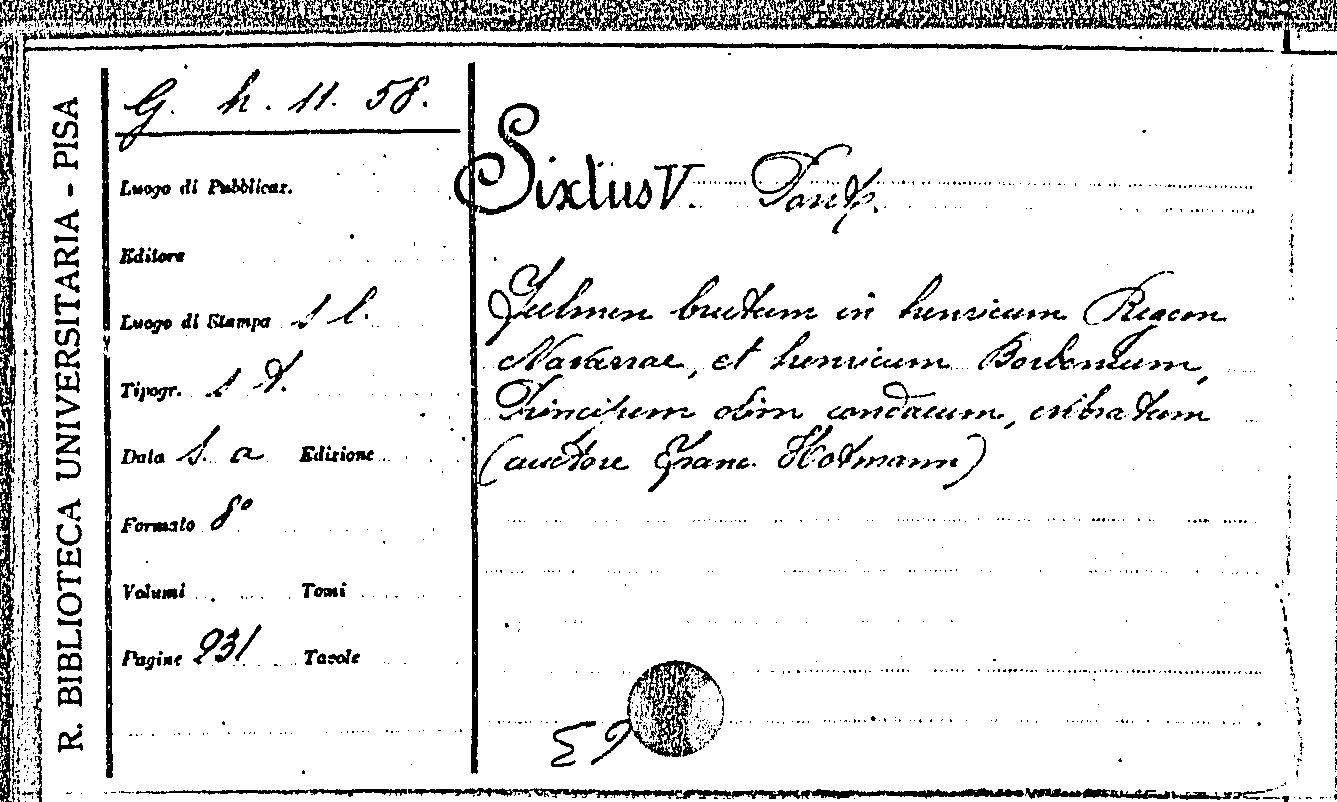 R. BIBLIOTECA UNIVERSITARIA - PISA
G. h. 11. 58.
Luogo di Pubblicaz.
Editore
Luogo di Stampa s l.
Tipogr. s t.
Data s. a Edizione
Formato 8°
Volumi Tomi
Pagine 231 Tavole
Sixtus V. Pontf.
Fulmen brutum in henricum Regem
Navarrae, et henricum Borbonium,
Principem olim condaeum, vibratum
(auctore Franc. Hotmann)